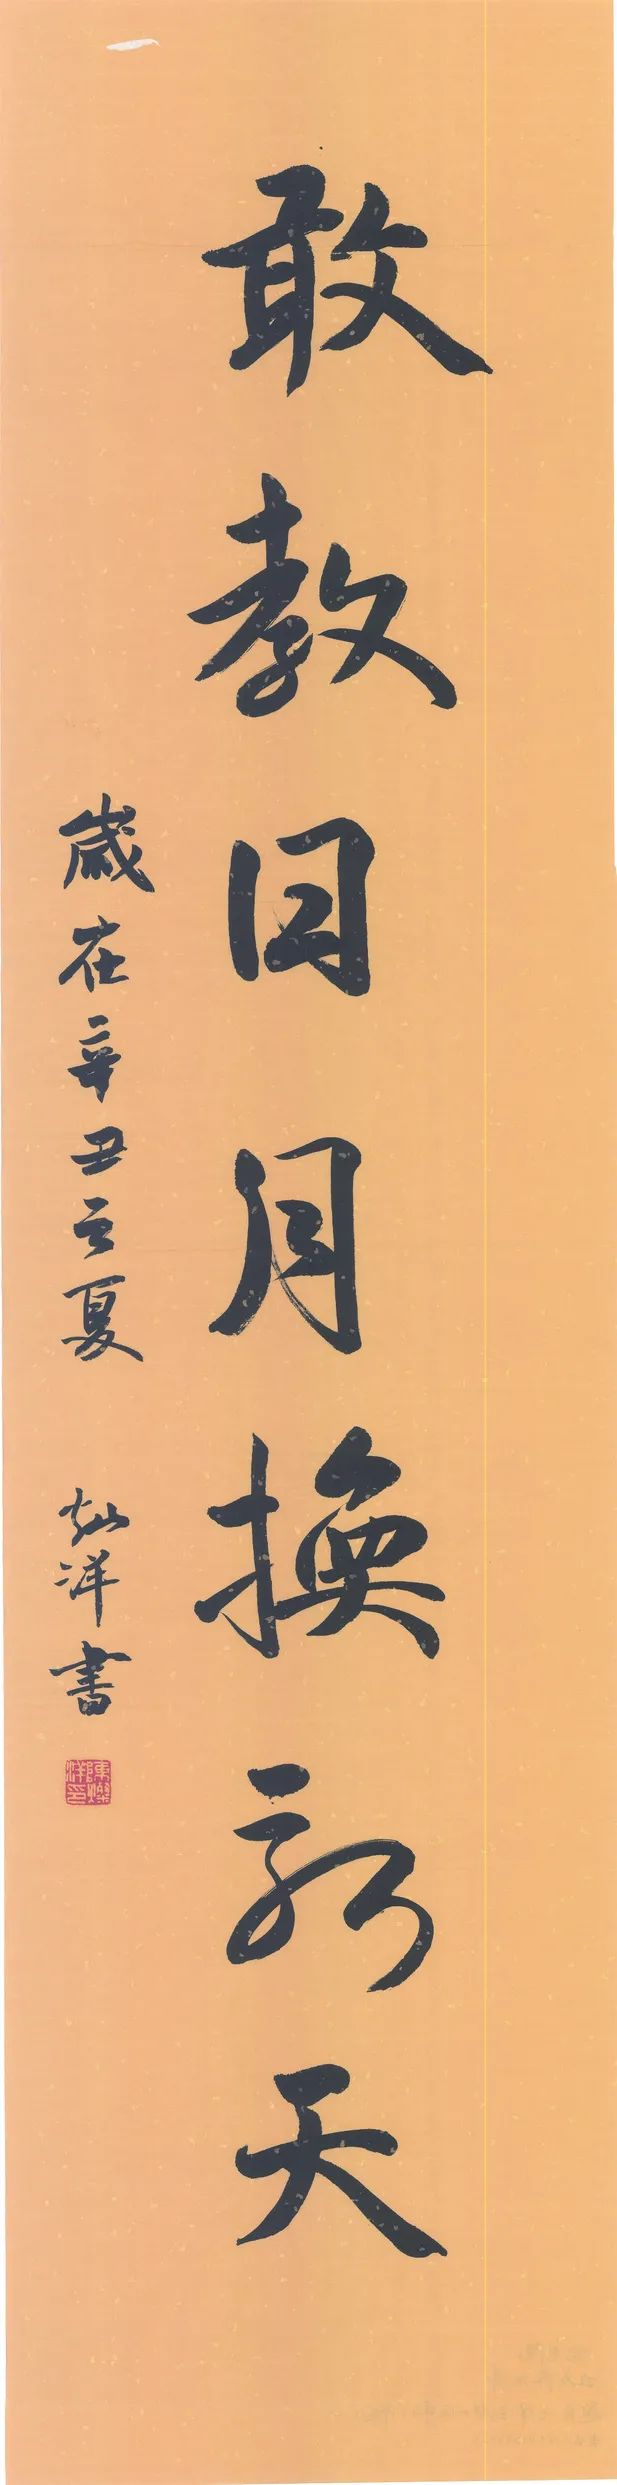 敢教日月換新天
歲在辛丑之夏
灿洋書
陳燦洋印